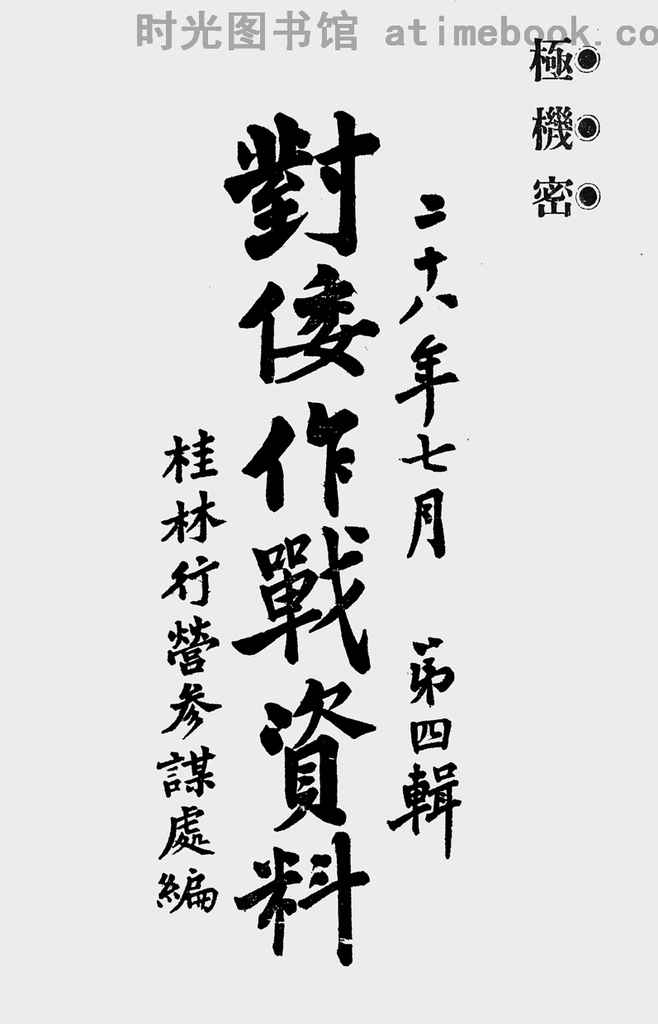 时光图书馆 atimebook.co
極機密
二十八年七月 第四輯
對倭作戰資料
桂林行營參謀處編